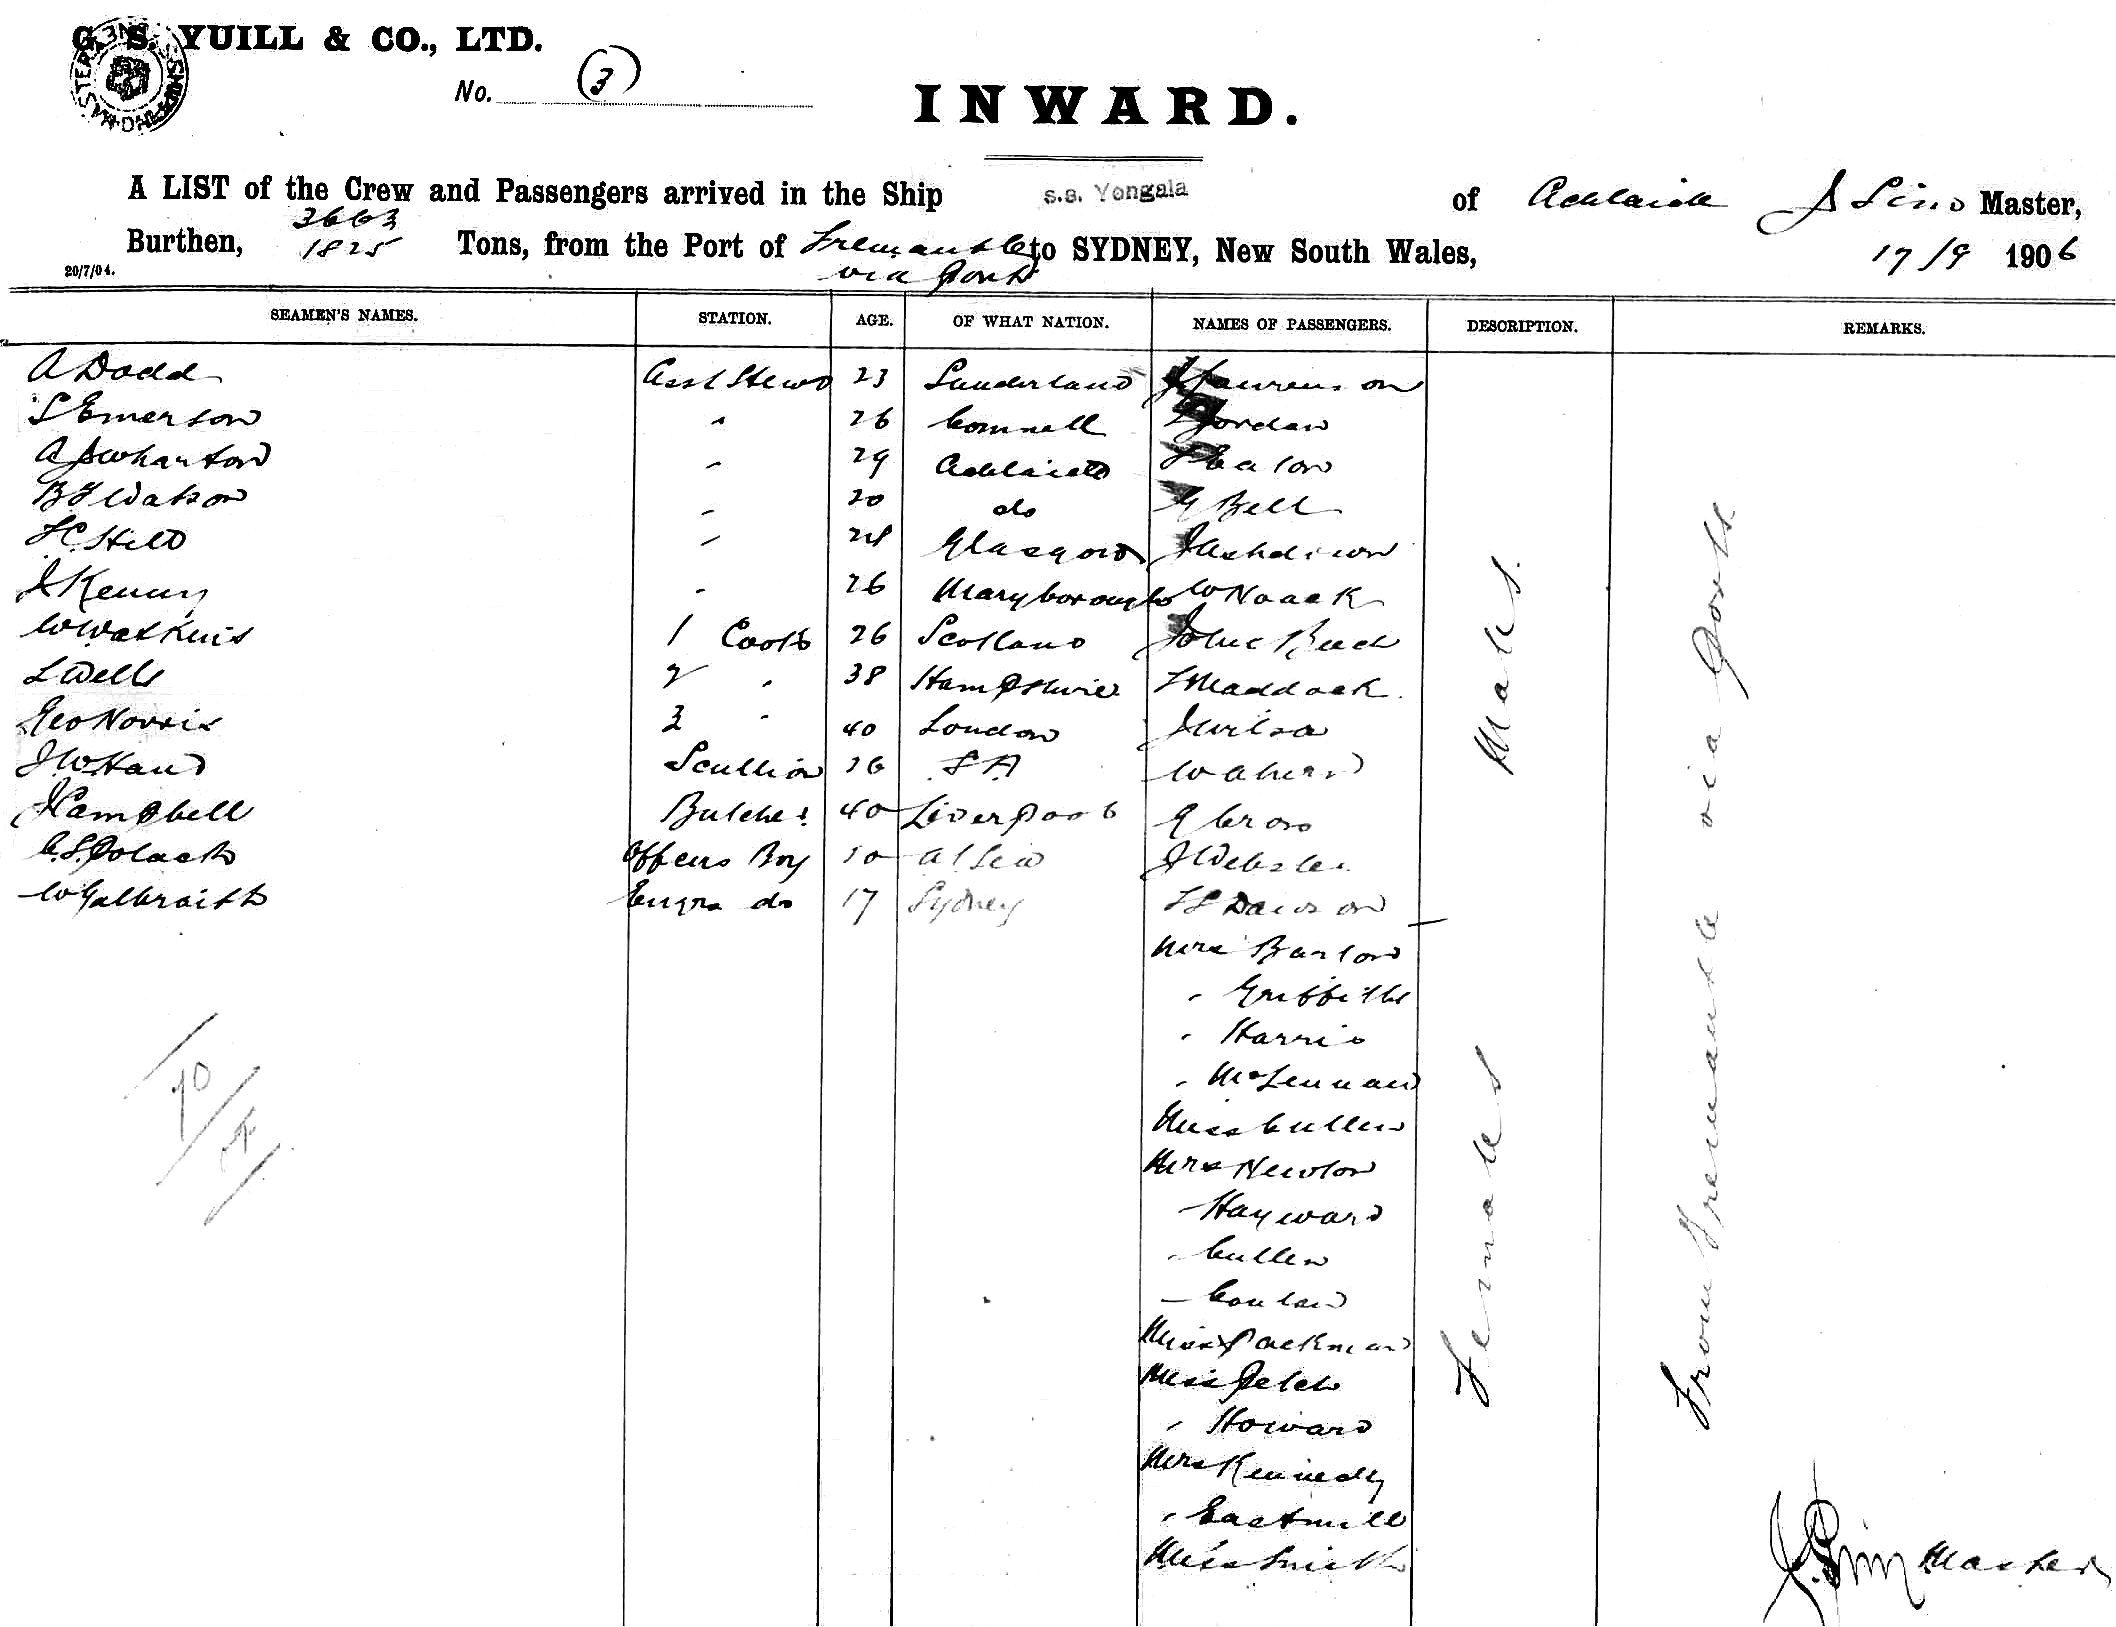 G. S. YUILL & CO., LTD.
No. (3)
INWARD.
A LIST of the Crew and Passengers arrived in the Ship s.s. Yongala of Adelaide J Sim Master,
Burthen, 3663 1825 Tons, from the Port of Fremantle via Ports to SYDNEY, New South Wales, 17/9 1906
20/7/04.
SEAMEN'S NAMES. STATION. AGE. OF WHAT NATION. NAMES OF PASSENGERS. DESCRIPTION. REMARKS.
A Dodd Asst Stewd 23 Sunderland
S Emerson " 26 Cornwall Jordan
A J Wharton " 29 Adelaide
B F Watson " 20 do G Bell
H C Hill " 24 Glasgow J Ashdown
J Kenny " 26 Maryborough W Noack
W Watkins 1 Cook 26 Scotland
L Wells 2 " 38 Hampshire T Maddock
Geo Norris 3 " 40 London J Wilson
J W Hand Scullion 26 S A W Ahern
J Campbell Butcher 40 Liverpool G Cross
C. S. Polack Officers Boy J Webster
W Galbraith Engrs do 17 Sydney Dawson
Mrs Barlow
" Griffiths
" Harris
" McLennan
Miss Cullen
Mrs Newton
" Hayward
" Cullen
" Conlan
Miss Packman
Miss Petch
" Howard
Mrs Kennedy
" Eastmill
Miss Smith
Males
Females
From Fremantle via Ports
J. Sim Master